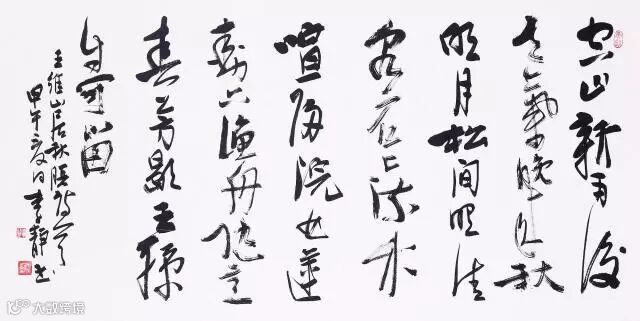 空山新雨後
天氣晚來秋
明月松間照清
泉石上流竹
喧歸浣女蓮
動下漁舟隨意
春芳歇王孫
自可留
王維山居秋暝詩一首
甲午夏日李靜書
大数跨境